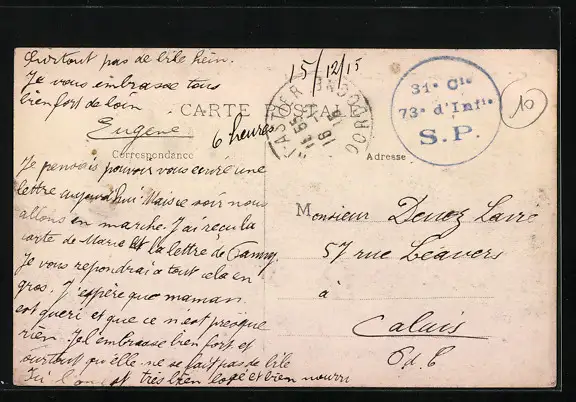 Surtout pas de bile hein.
Je vous embrasse tous
bien fort de loin
Eugène
6 heures
15/12/15
CARTE POSTALE
Correspondance
Adresse
31e Cie
73e d'Infie
S.P.
10
Je pensais pouvoir vous ecrire une
lettre aujourd'hui Mais ce soir nous
allons en marche. J'ai reçu la
carte de Marie et la lettre de Fanny
Je vous repondrai a tout cela en
gros. J'espère que maman
est gueri et que ce n'est presque
rien. Je l'embrasse bien fort et
surtout qu'elle ne se fait pas de bile
Ici l'on est très bien logé et bien nourri
Monsieur
57 rue
à
Calais
P d. C